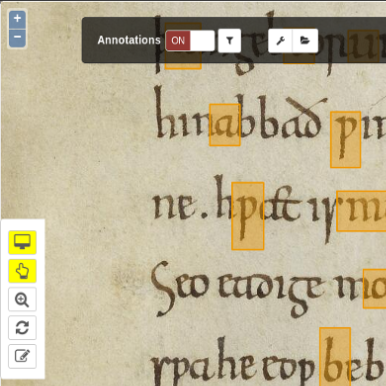 Annotations ON
hi nabbað ƿı
ne. hƿæt is m
Seo eadige mo
sƿa he eoƿ beb